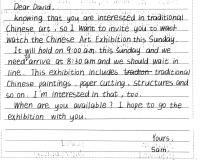 Dear David,
knowing that you are interested in traditional
Chinese art, so I want to invite you to wast
watch the Chinese Art Exhibition this Sunday.
It will hold on 9:00 am. this Sunday and we
need arrive at 8:30 am and we should wait in
line. This exhibition includes tradition traditional
Chinese paintings, paper cutting, structures and
so on. I'm interessed in that, too.
When are you available? I hope to go the
exhibition with you.
Yours,
Sam.